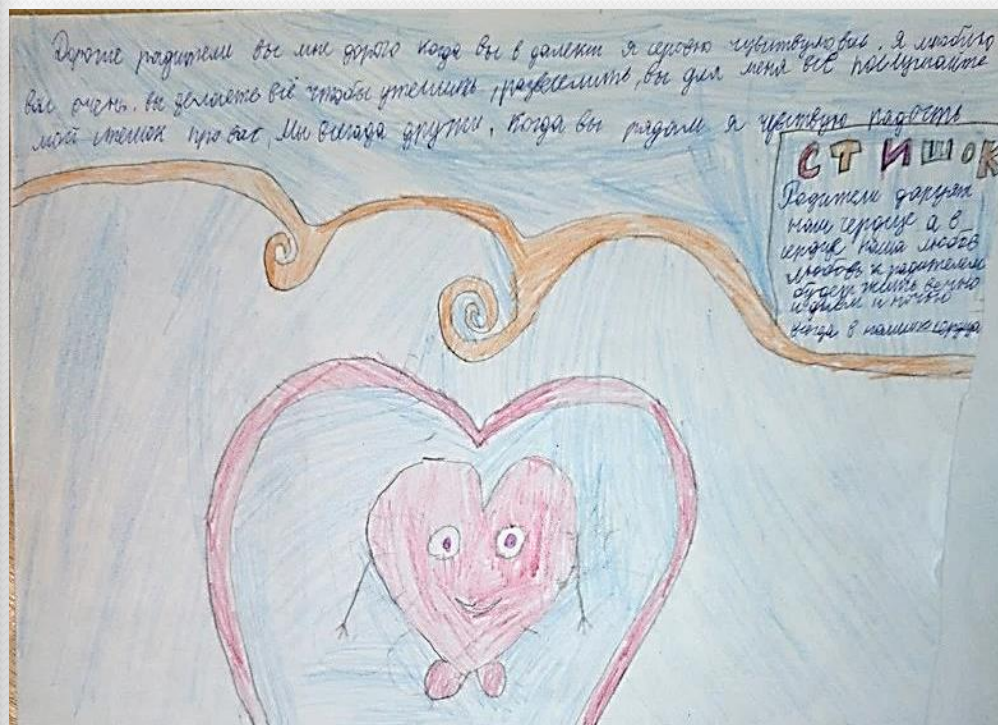 Дороже радители вы мне дорого когда вы в далеки я серовно чувствую вас. Я люблю
вас очень. вы делаете всё чтобы утешить, развеселить, вы для меня всё послушайте
мой стешок про вас, Мы всегда дружны, Когда вы рядом я чувствую радость
СТИШОК
Радители дарует
нам сердце а в
сердце наша любовь
любовь к радителям
будет жить вечно
и днём и ночью
всегда в наших сердца